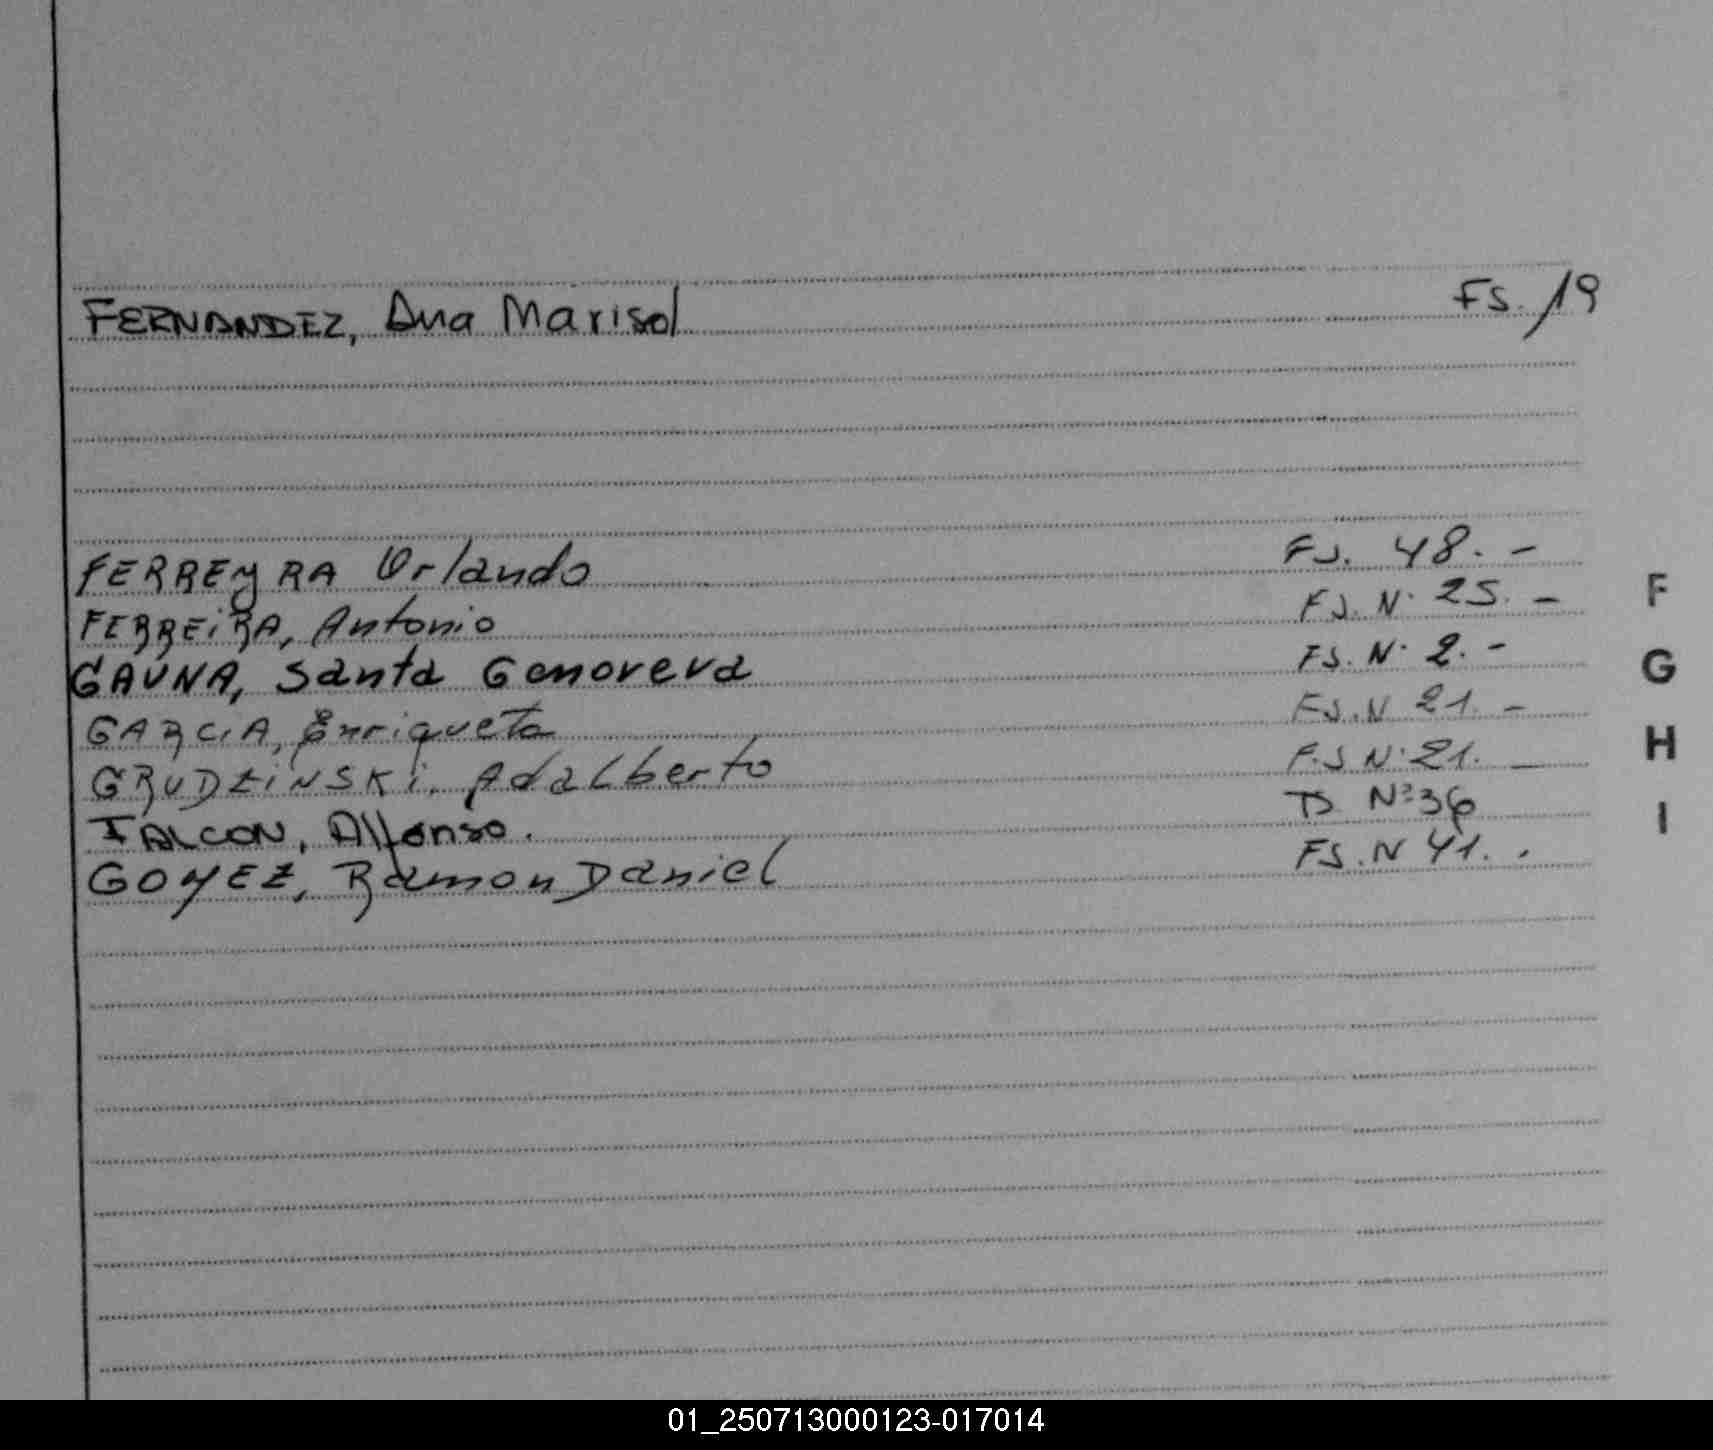 FERNANDEZ, Ana Marisol FS. 19
FERREYRA Orlando FS. 48. -
FERREIRA, Antonio FS. N. 25. -
GAUNA, Santa Genoveva FS. N. 2. -
GARCIA, Enriqueta FS. N 21. -
GRUDZINSKI, Adalberto F.S N. 21. -
FALCON, Alfonso. Nº 36
GOMEZ, Ramon Daniel FS. N 41. .
F
G
H
I
01_250713000123-017014